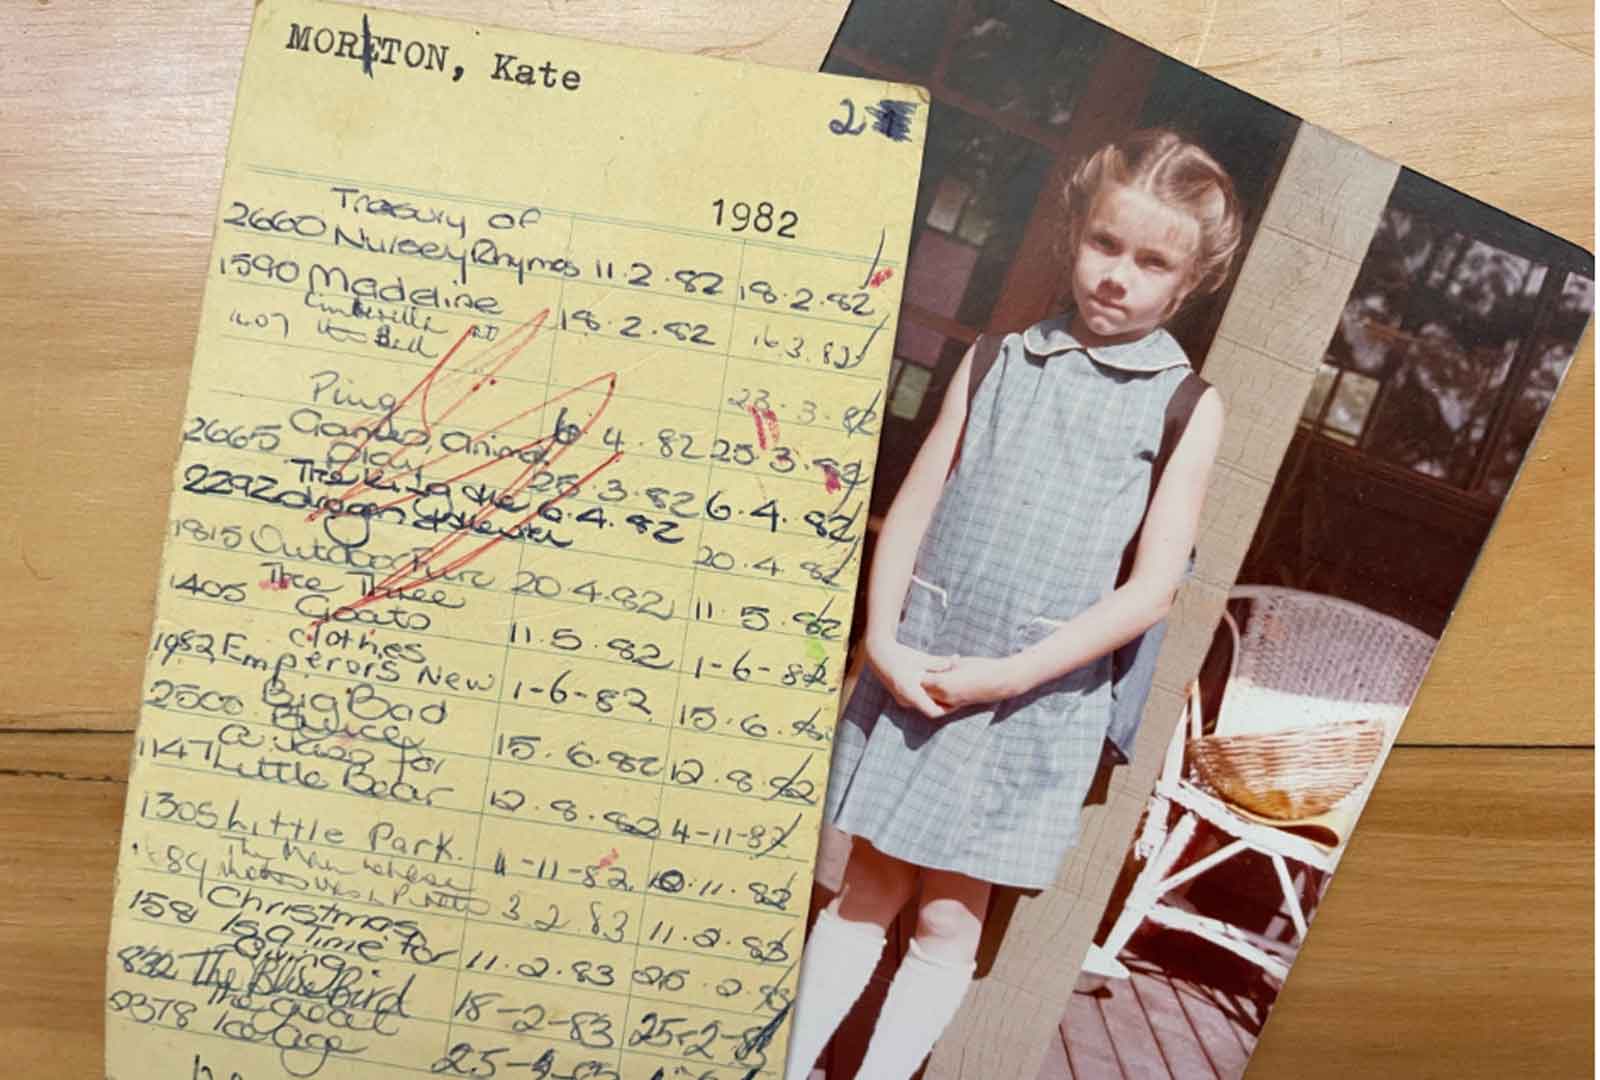 MORETON, Kate
2
1982
Treasury of
2660 Nursey Rhymes 11.2.82 18.2.82
1590 Madeline 18.2.82 16.3.82
1607
Ping 23.3.82
2665 Games, Animal 6.4.82 25.3.82
Play 25.3.82 6.4.82
2292 dragon 6.4.82
20.4.82
1815 Outdoor 20.4.82 11.5.82
The Three
1405 Goats 11.5.82 1-6-82
clothes
1982 Emperors New 1-6-82 15.6.82
Big Bad
2500 Bruce 15.6.82 12.8.82
A Kiss for
1147 Little Bear 12.8.82 4-11-82
1305 Little Park. 4-11-82 10.11.82
The Man whose
Mother was a Pirate 3.2.83 11.2.83
Christmas
1591 Is a Time for 11.2.83 25.2.83
Giving
832 The Blue Bird 18-2-83 25-2-83
The great
0378 Ice age